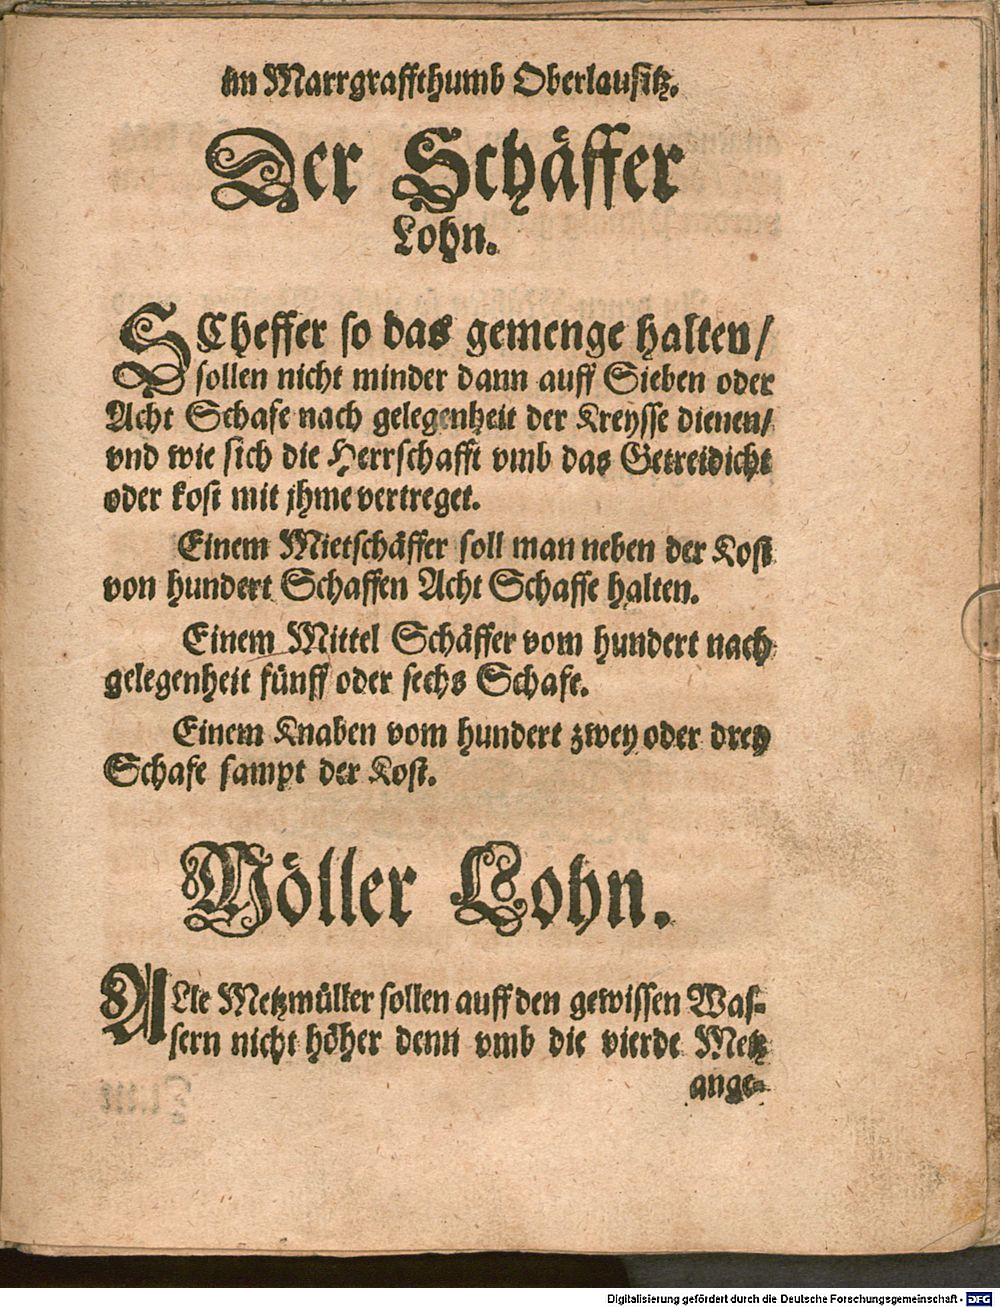 im Marrgraffthumb Oberlausitz.
Der Schäffer
Lohn.
SCheffer so das gemenge halten/
sollen nicht minder dann auff Sieben oder
Acht Schafe nach gelegenheit der Kreysse dienen/
vnd wie sich die Herrschafft vmb das Getreidicht
oder kost mit jhme vertreget.
Einem Mietschäffer soll man neben der Kost
von hundert Schaffen Acht Schaffe halten.
Einem Mittel Schäffer vom hundert nach
gelegenheit fünff oder sechs Schafe.
Einem Knaben vom hundert zwey oder drey
Schafe sampt der Kost.
Möller Lohn.
ALle Metzmüller sollen auff den gewissen Was-
sern nicht höher denn vmb die vierde Metz
ange-
Digitalisierung gefördert durch die Deutsche Forschungsgemeinschaft - DFG